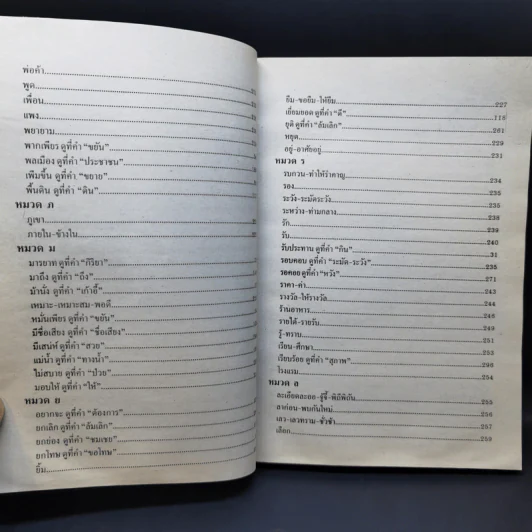 พ่อค้า
พูด
เพื่อน
แพง
พยายาม
พากเพียร ดูที่คำ "ขยัน"
พลเมือง ดูที่คำ "ประชาชน"
เพิ่มขึ้น ดูที่คำ "ขยาย"
พื้นดิน ดูที่คำ "ดิน"
หมวด ภ
ภูเขา
ภายใน-ข้างใน
หมวด ม
มารยาท ดูที่คำ "กิริยา"
มาถึง ดูที่คำ "ถึง"
ม้านั่ง ดูที่คำ "เก้าอี้"
เหมาะ-เหมาะสม-พอดี
หมั่นเพียร ดูที่คำ "ขยัน"
มีชื่อเสียง ดูที่คำ "ชื่อเสียง"
มีเสน่ห์ ดูที่คำ "สวย"
แม่น้ำ ดูที่คำ "ทางน้ำ"
ไม่สบาย ดูที่คำ "ป่วย"
มอบให้ ดูที่คำ "ให้"
หมวด ย
อยากจะ ดูที่คำ "ต้องการ"
ยกเลิก ดูที่คำ "ล้มเลิก"
ยกย่อง ดูที่คำ "ชมเชย"
ยกโทษ ดูที่คำ "ขอโทษ"
ยิ้ม
ยืม-ขอยืม-ให้ยืม 227
เยี่ยมยอด ดูที่คำ "ดี" 118
ยุติ ดูที่คำ "ล้มเลิก" 261
หยุด 229
อยู่-อาศัยอยู่ 231
หมวด ร
รบกวน-ทำให้รำคาญ 234
รอง 235
ระวัง-ระมัดระวัง 235
ระหว่าง-ท่ามกลาง 238
รัก 239
รับ 240
รับประทาน ดูที่คำ "กิน" 31
รอบคอบ ดูที่คำ "ระมัด-ระวัง" 235
รอคอย ดูที่คำ "หวัง" 271
ราคา-ค่า 243
รางวัล-ให้รางวัล 244
ร้านอาหาร 245
รายได้-รายรับ 249
รู้-ทราบ 251
เรียน-ศึกษา 250
เรียบร้อย ดูที่คำ "สุภาพ" 298
โรงแรม 254
หมวด ล
ละเอียดละออ-จู้จี้-พิถีพิถัน 255
ลาก่อน-พบกันใหม่ 256
เลว-เลวทราม-ชั่วช้า 258
เลือก 259